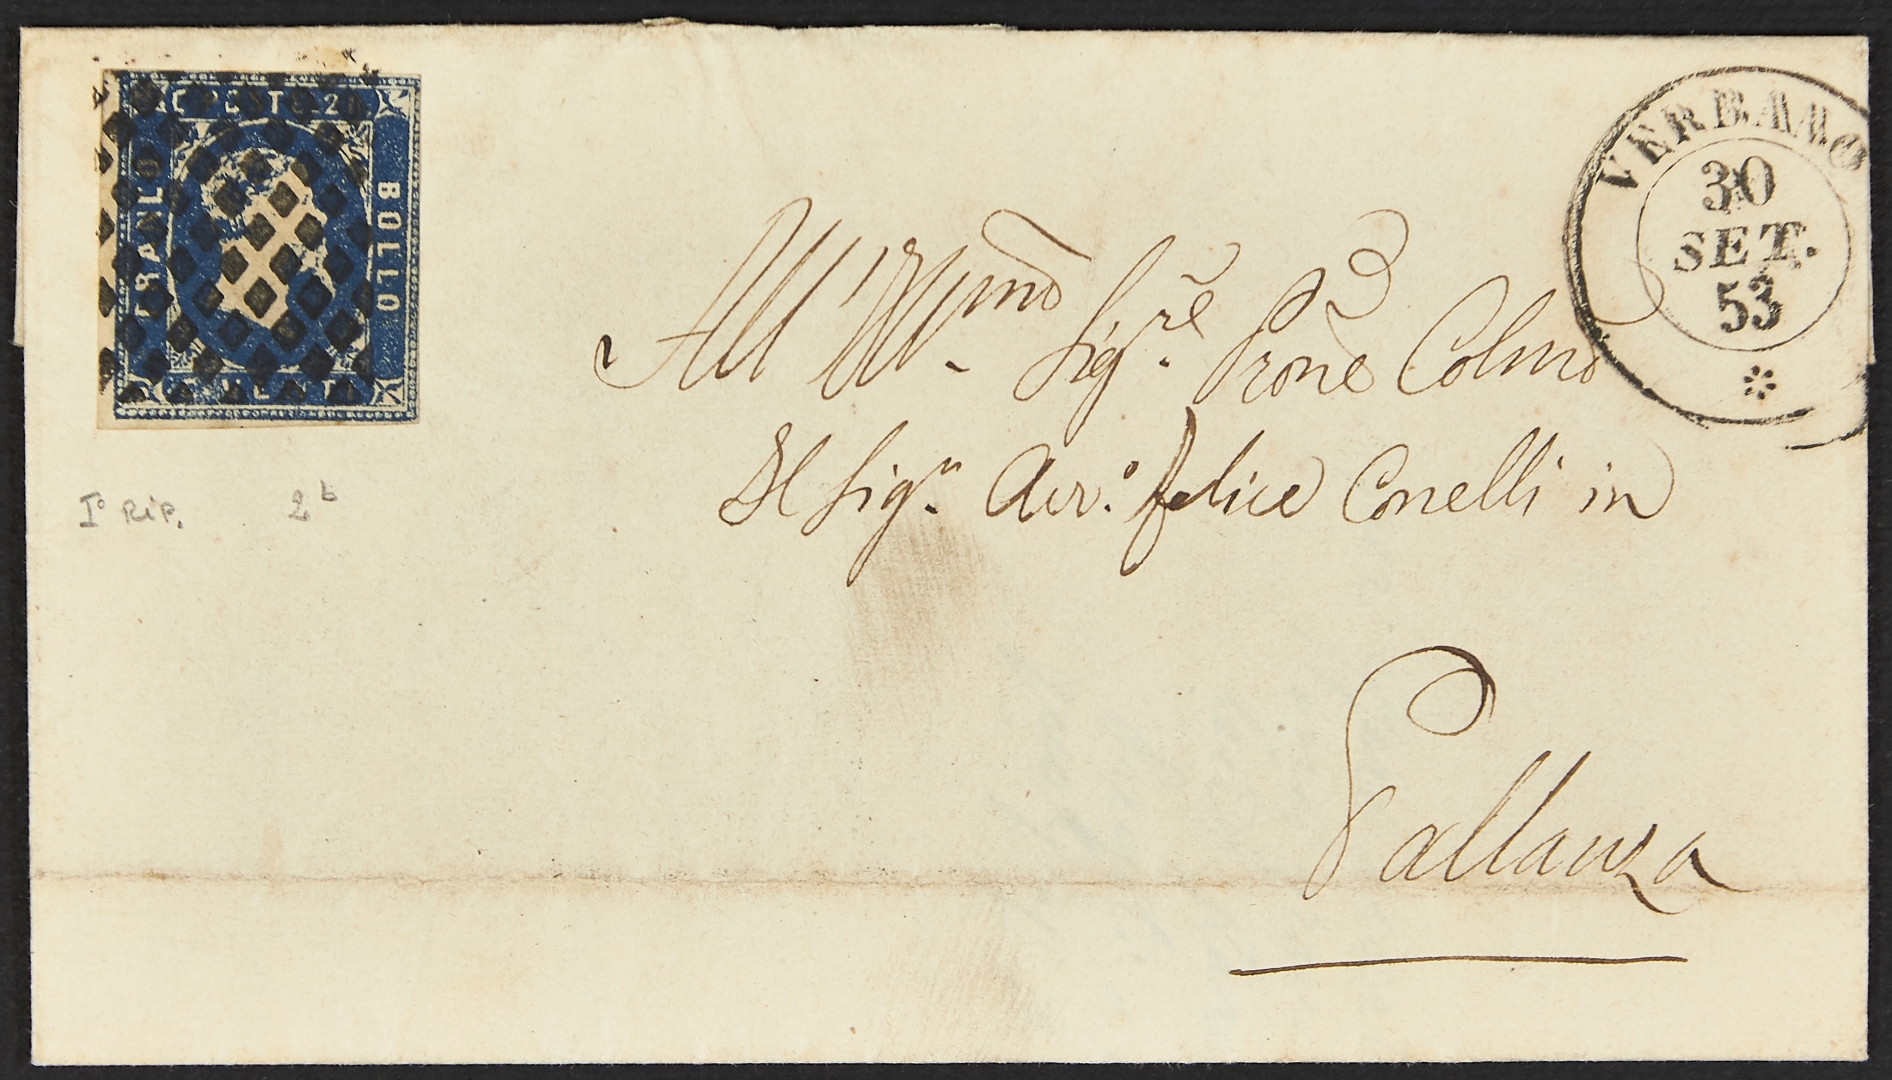 C. VENTI 20
FRANCO
BOLLO
C. VENTI
VERBANO
30
SET.
53
All' Illmo. Sigre. Prone Colmo
Il Sigr. Avv.o felice Conelli in
Pallanza
I° RiP. 2b